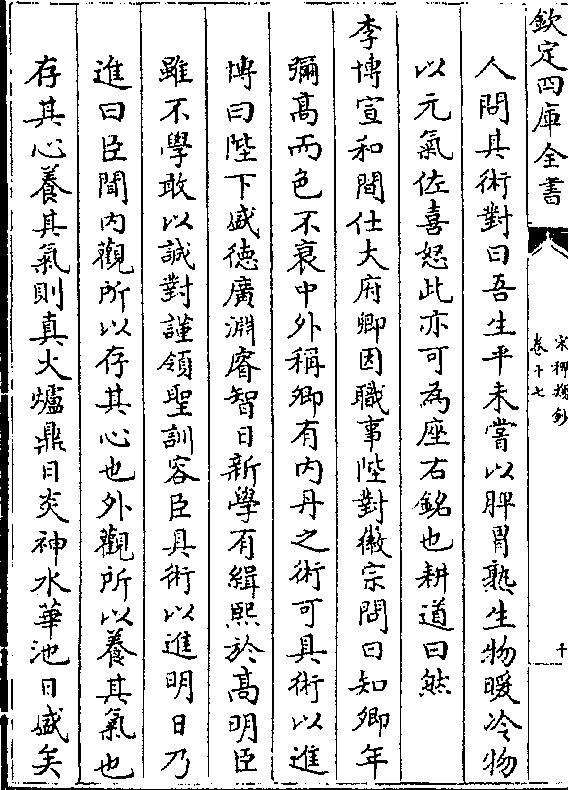 欽定四庫全書
宋稗類鈔
卷十七
十
人問其術對曰吾生平未嘗以脾胃熟生物暖冷物
以元氣佐喜怒此亦可為座右銘也耕道曰然
李博宣和間仕大府卿因職事陛對徽宗問曰知卿年
彌髙而色不衰中外稱卿有内丹之術可具術以進
博曰陛下盛徳廣淵睿智日新學有緝熙於髙明臣
雖不學敢以誠對謹領聖訓容臣具術以進明日乃
進曰臣聞内觀所以存其心也外觀所以養其氣也
存其心養其氣則真火爐鼎日炎神水華池日盛矣